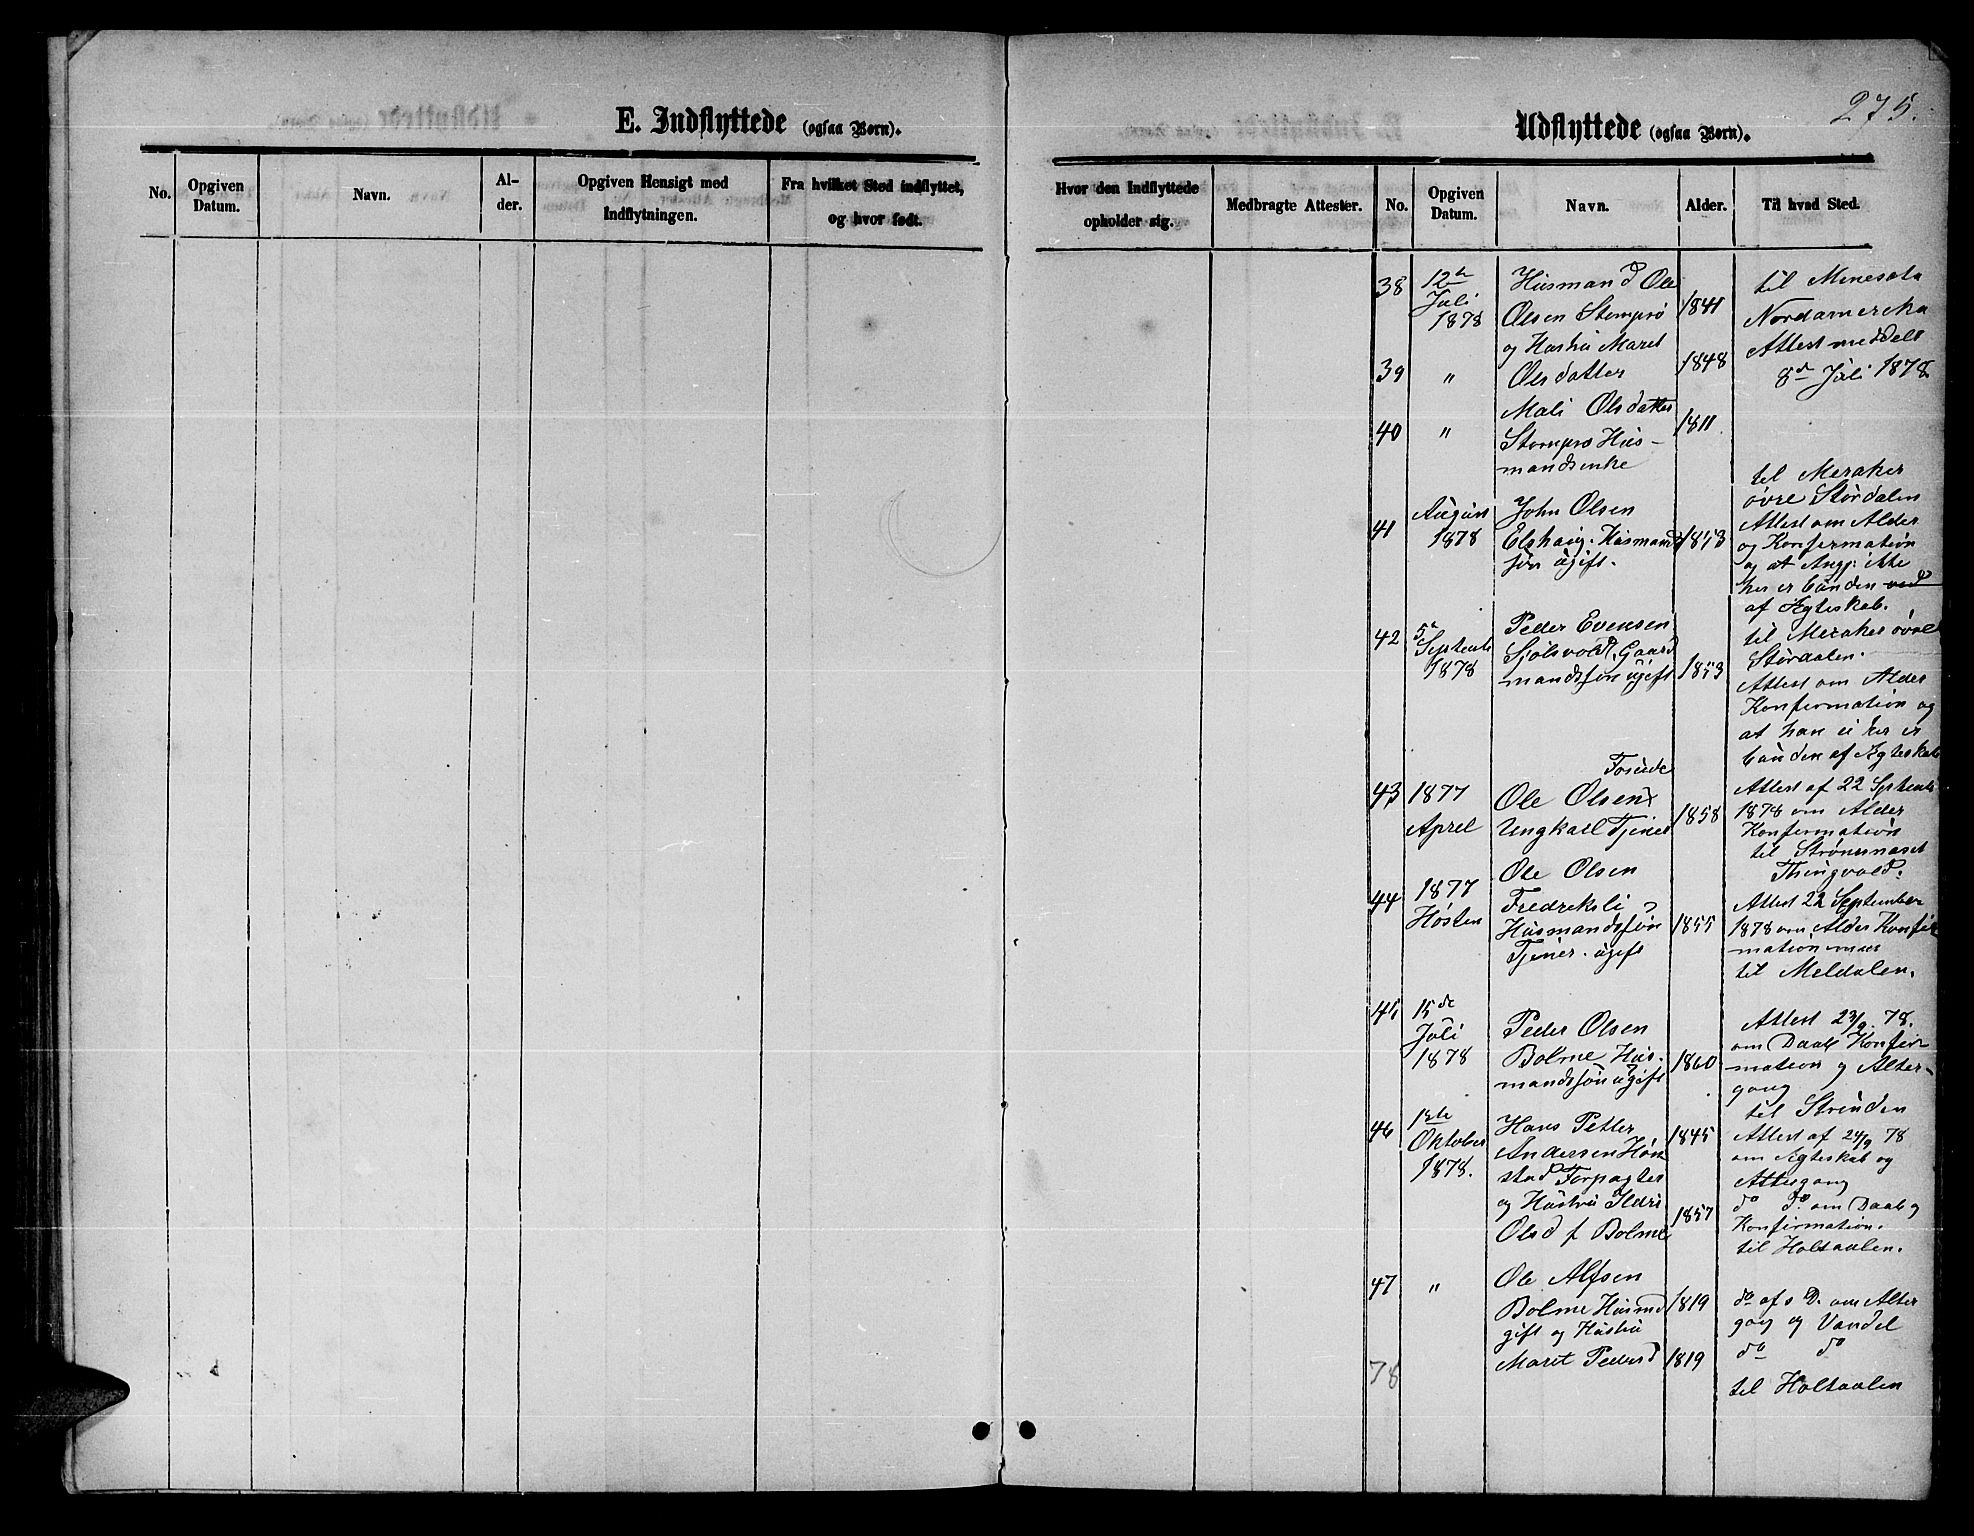 E. Indflyttede (ogsaa Børn).
No.
Opgiven Datum.
Navn.
Al-der.
Opgiven Hensigt med Indflytningen.
Fra hvilket Sted indflyttet, og hvor født.
275.
Udflyttede (ogsaa Børn).
Hvor den Indflyttede opholder sig.
Medbragte Attester.
No.
Opgiven Datum.
Navn.
Alder.
Til hvad Sted.
38 12te Juli 1878
Husmand Ole
Olsen Stomprø 1841
og Hustru Maret
39 " Olsdatter 1848
til Minesota
Nordamerika
Attest meddelt
8de Juli 1878
40 " Mali Olsdatter 1811
Stomprø Hus-
mandsenke
41 August 1878
John Olsen
Elshaug. Husmands 1853
søn ugift.
til Meraker
øvre Størdalen
Attest om Alder
og Konfirmation
og at Angj: ikke
her er bunden ved
af Ægteskab.
42 5te Septembr 1878
Peder Evensen
Sjølsvold, Gaard
mandssøn ugift 1853
til Meraker øvre
Størdalen.
Attest om Alder
Konfirmation og
at han ei her er
bunden af Ægteskab
43 1877 April
Tosiude
Ole Olsen
Ungkarl Tjener 1858
Attest af 22 Septemb
1878 om Alder
Konfirmation
til Strømsnæset
Thingvold.
44 1877 Høsten
Ole Olsen
Fredreksli
Husmandssøn 1855
Tjener. ugift
Attest 22 September
1878 om Alder Konfir
mation
til Meldalen.
45 15de Juli 1878
Peder Olsen
Bolme Hus-
mandssøn ugift 1860
Attest 23/9. 78.
om Daab Konfir
mation og Alter-
gang
til Strinden
46 1ste Oktober 1878.
Hans Petter 1845
Andersen Høn
stad Forpagter
og Hustru Ildri
Olsd f Bolme 1857
Attest af 24/9 78
om Ægteskab og
Altergang
do do om Daab og
Konfirmation.
til Holtaalen.
47 " Ole Alfsen
Bolme Husmd 1819
gift og Hustru
78 Maret Pedersd 1819
do af s D. om Alter
gang og Vandel
do do
til Holtaalen